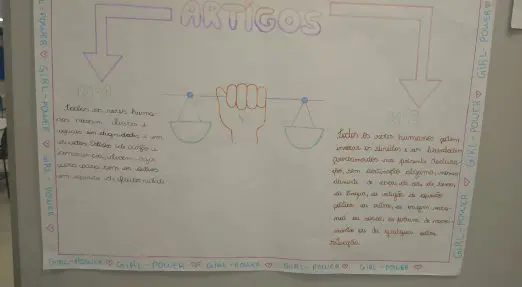 ARTIGOS
Todos os seres huma-
nos nascem livres e
iguais em dignidade e em
direitos. Dotados de razão e
consciência, devem agir
uns para com os outros
em espírito de fraternidade
Todos os seres humanos podem
invocar os direitos e as liberdades
proclamados na presente Declara-
ção, sem distinção alguma,
de raça, de cor, de sexo,
de língua, de religião, de opinião
política ou outra, de origem
ou social, de fortuna, de nasci-
mento ou de qualquer outra
situação.
GIRL-POWER ♡ GIRL-POWER ♡ GIRL-POWER ♡ GIRL-POWER ♡ GIRL-POWER ♡
GIRL-POWER
GIRL-POWER
GIRL-POWER
GIRL-POWER
GIRL-POWER